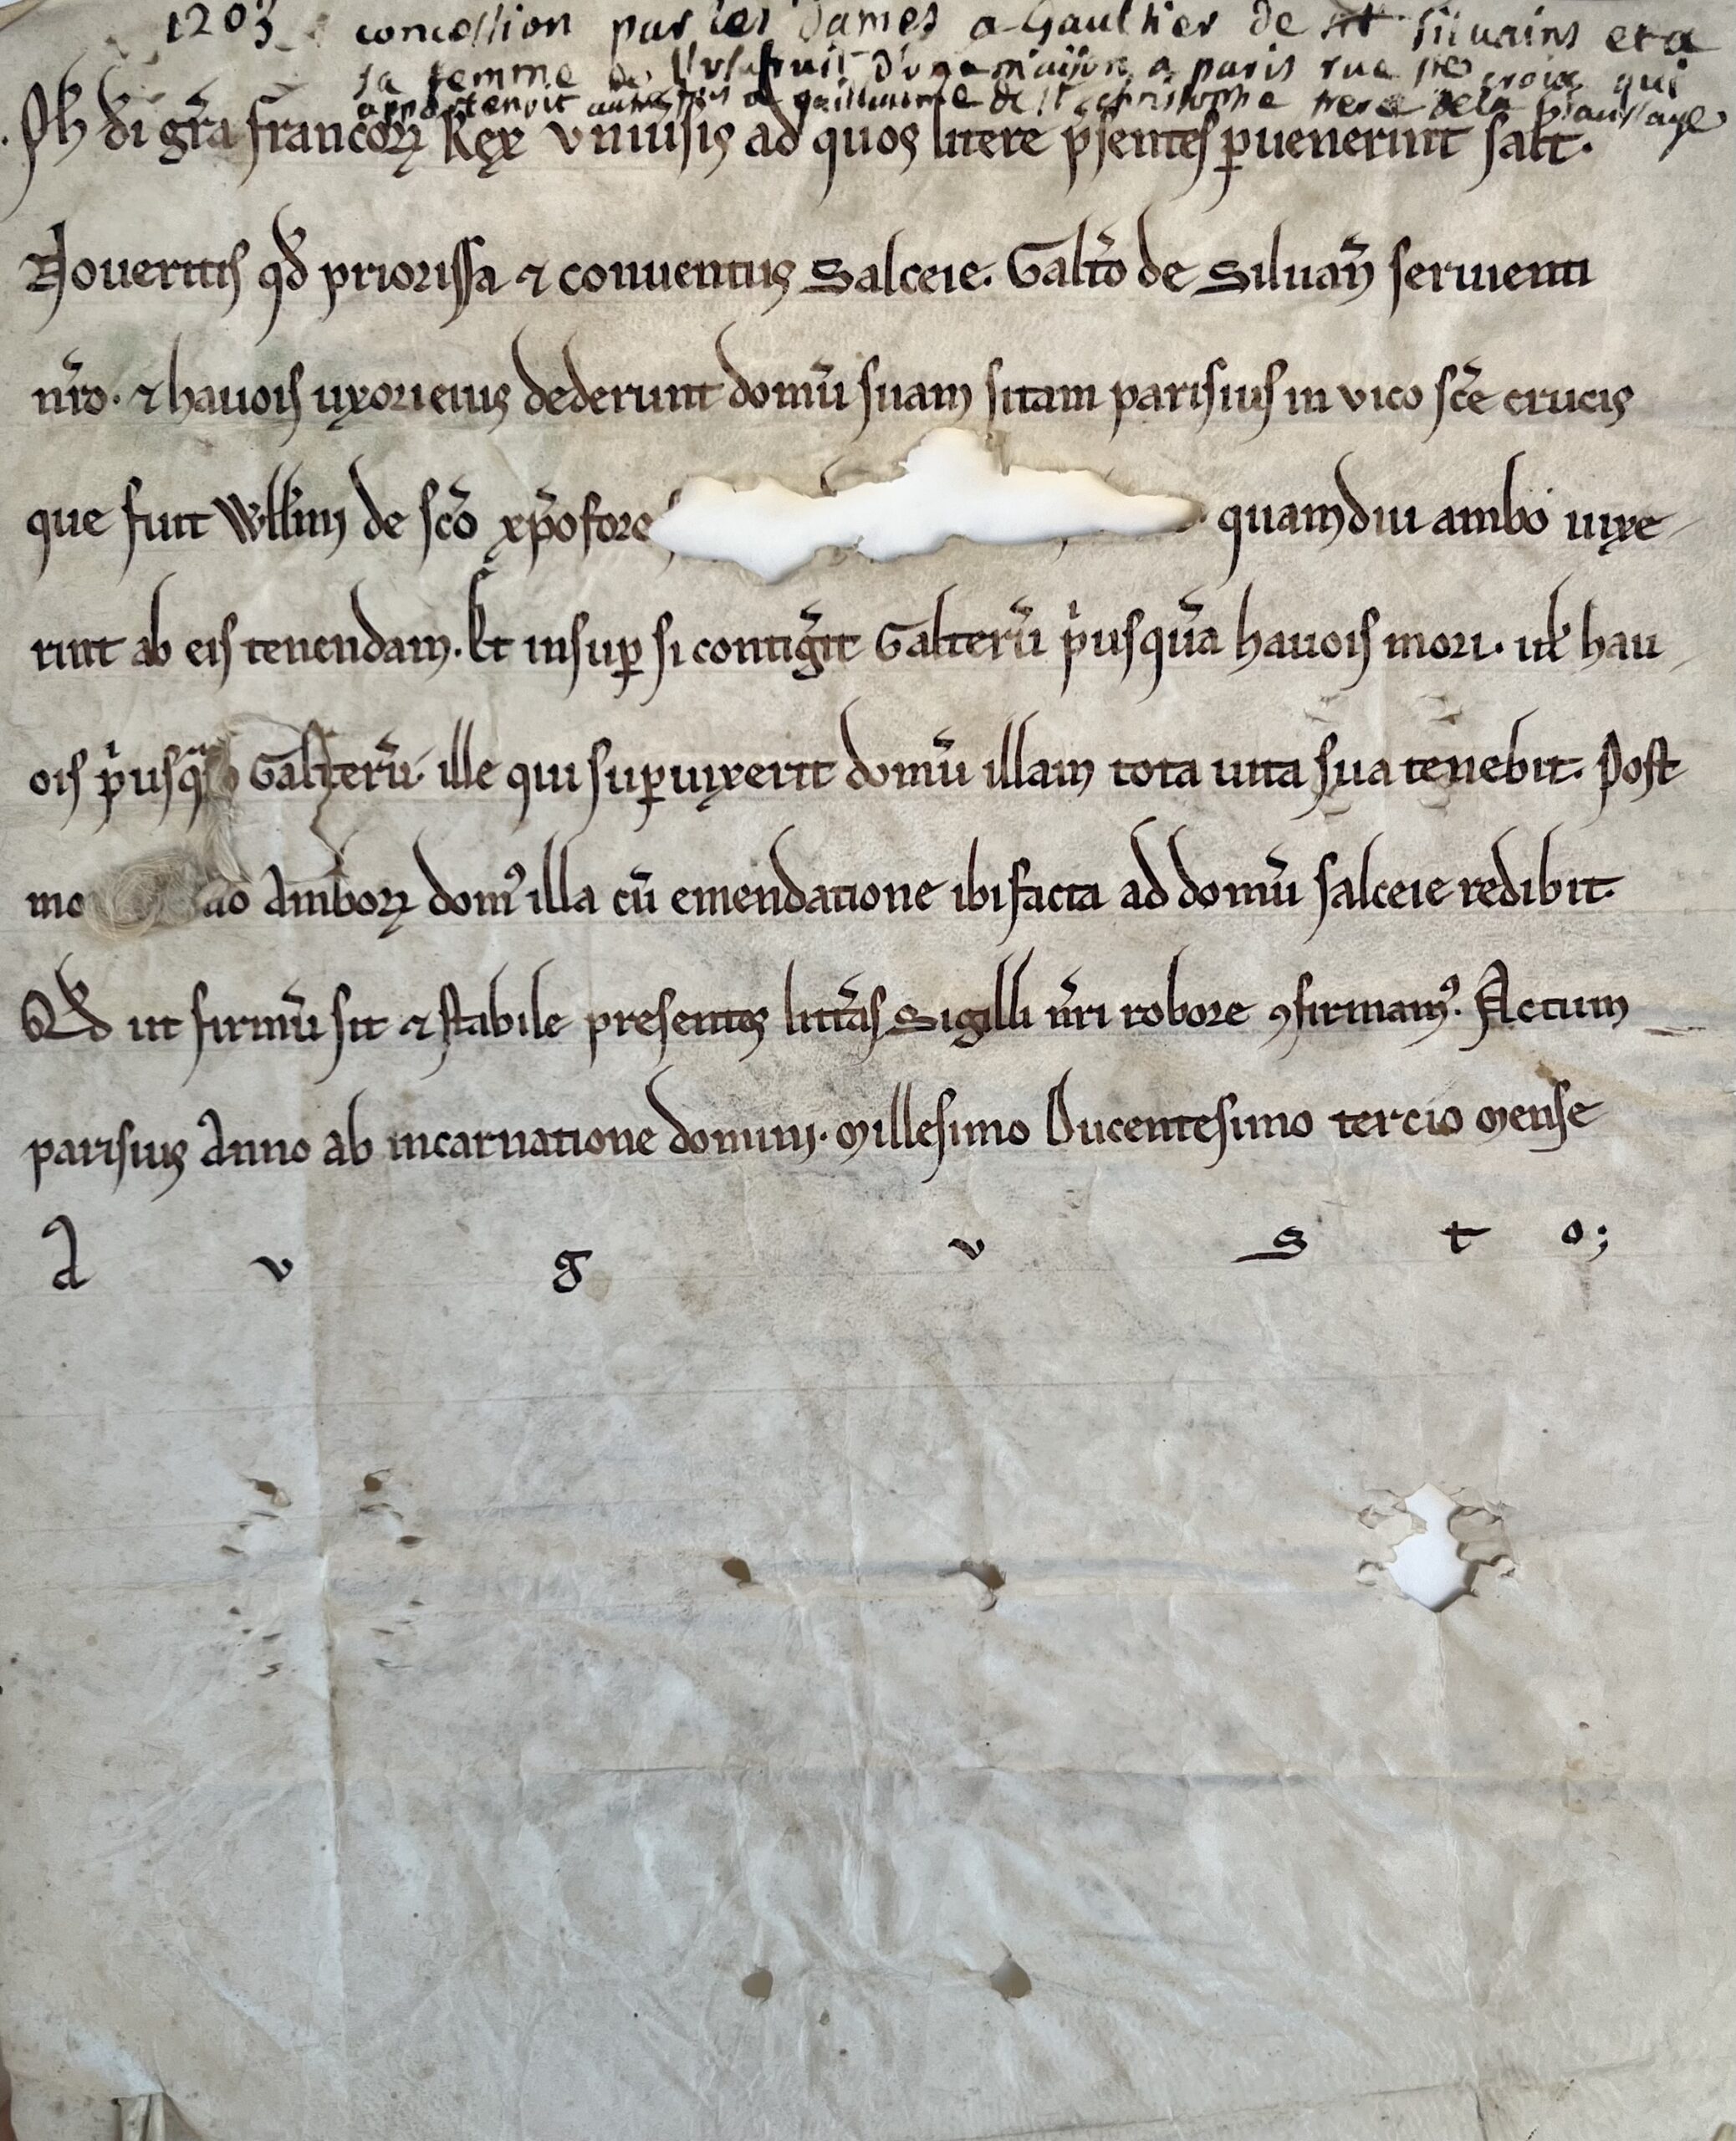 1203 concession par les Dames a Gaulthier de st Siluains et a
sa femme de l'usufruit d'une maison a paris rue ste croix qui
appartenoit autresfois a guillaume de st christophe frere de la Saussaye
Ph̃ di gr̃a francoꝝ Rex vniũsis ad quos litere p̃sentes ꝑuenerint salt̃.
Noueritis qd̃ priorissa ⁊ conuentus Salceie. Galt̃o de Siluañ seruienti
nr̃o. ⁊ hauois uxori eius dederunt domũ suam sitam parisius in vico sc̃e crucis
que fuit Wll̃mi de sc̃o xp̃ofore quamdiu ambo uixe
rint ab eis tenendam. Et insuꝑ si contig̃it Galterũ p̃usquã hauois mori. uł hau
ois p̃usq Galterũ. ille qui suꝑuixerit domũ illam tota uita sua tenebit. Post
mo Amboꝝ domꝰ illa cũ emendatione ibi facta ad domũ salceie redibit.
Qd̃ ut firmũ sit ⁊ stabile presentes litt̃as Sigilli nr̃i robore ꝯfirmamꝰ. Actum
parisius Anno ab incarnatione domini. Millesimo Ducentesimo tercio Mense
A v g v s t o;